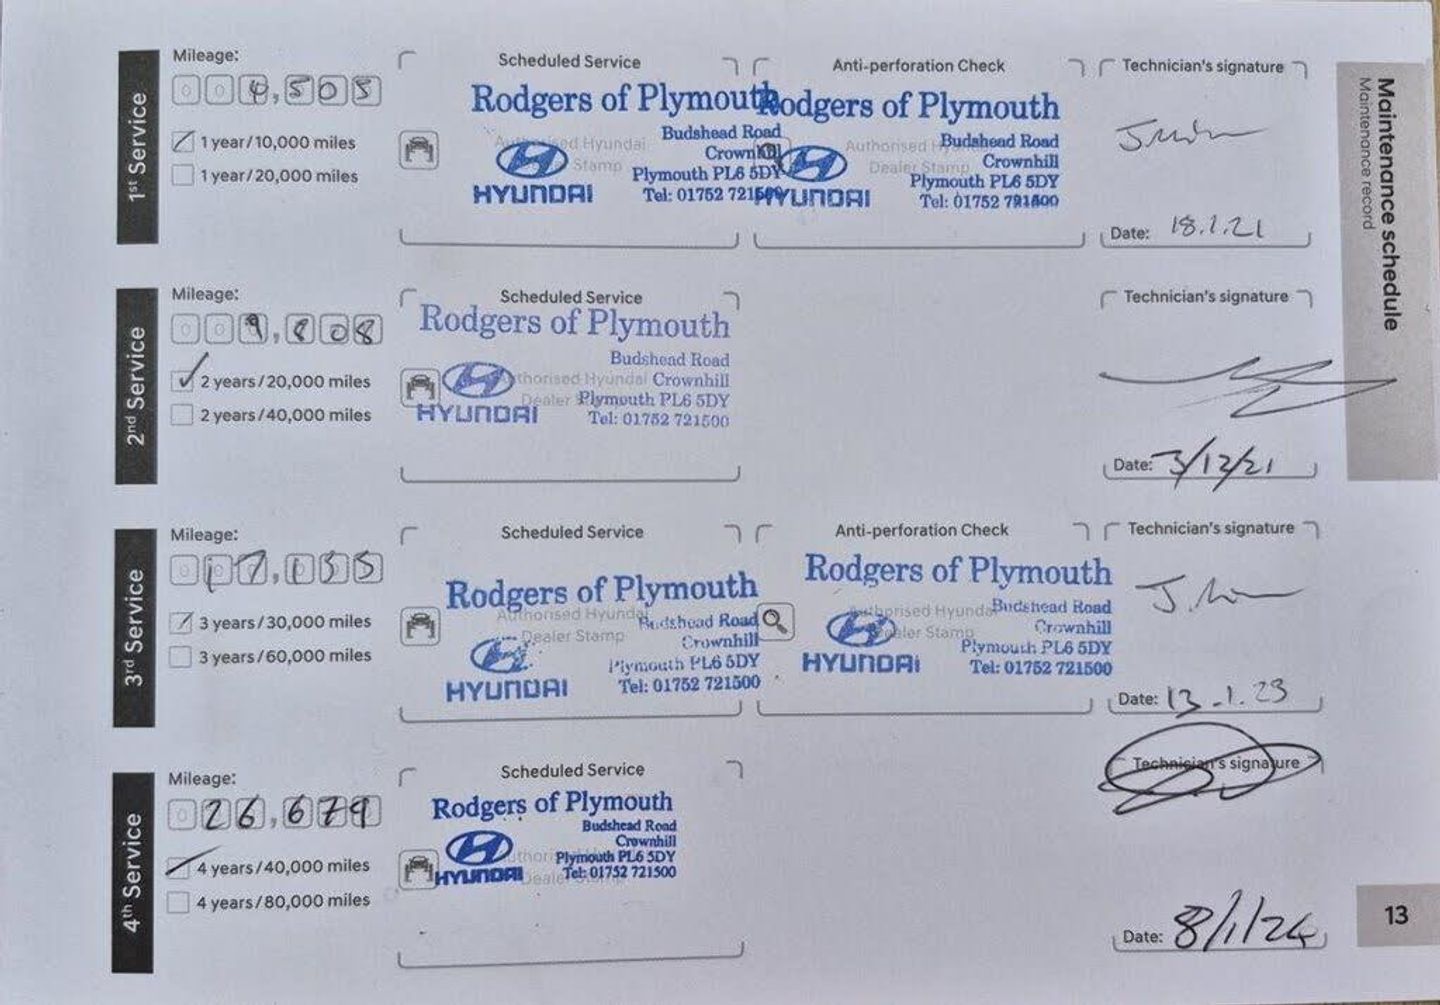 Maintenance schedule
Maintenance record
1st Service
Mileage:
004,505
1 year/10,000 miles
1 year/20,000 miles
Scheduled Service
Authorised Hyundai
Dealer Stamp
Rodgers of Plymouth
Budshead Road
Crownhill
Plymouth PL6 5DY
Tel: 01752 721500
HYUNDAI
Anti-perforation Check
Authorised Hyundai
Dealer Stamp
Rodgers of Plymouth
Budshead Road
Crownhill
Plymouth PL6 5DY
Tel: 01752 721500
HYUNDAI
Technician's signature
Date: 18.1.21
2nd Service
Mileage:
009,808
2 years/20,000 miles
2 years/40,000 miles
Scheduled Service
Rodgers of Plymouth
Budshead Road
Authorised Hyundai
Crownhill
Dealer
Plymouth PL6 5DY
HYUNDAI
Tel: 01752 721500
Technician's signature
Date: 3/12/21
3rd Service
Mileage:
017,135
3 years/30,000 miles
3 years/60,000 miles
Scheduled Service
Rodgers of Plymouth
Authorised Hyundai
Budshead Road
Dealer Stamp
Crownhill
Plymouth PL6 5DY
HYUNDAI
Tel: 01752 721500
Anti-perforation Check
Rodgers of Plymouth
Authorised Hyundai
Budshead Road
Dealer Stamp
Crownhill
Plymouth PL6 5DY
HYUNDAI
Tel: 01752 721500
Technician's signature
Date: 13.1.23
4th Service
Mileage:
026,679
4 years/40,000 miles
4 years/80,000 miles
Scheduled Service
Rodgers of Plymouth
Budshead Road
Crownhill
Plymouth PL6 5DY
HYUNDAI
Dealer
Tel: 01752 721500
Technician's signature
Date: 8/1/24
13